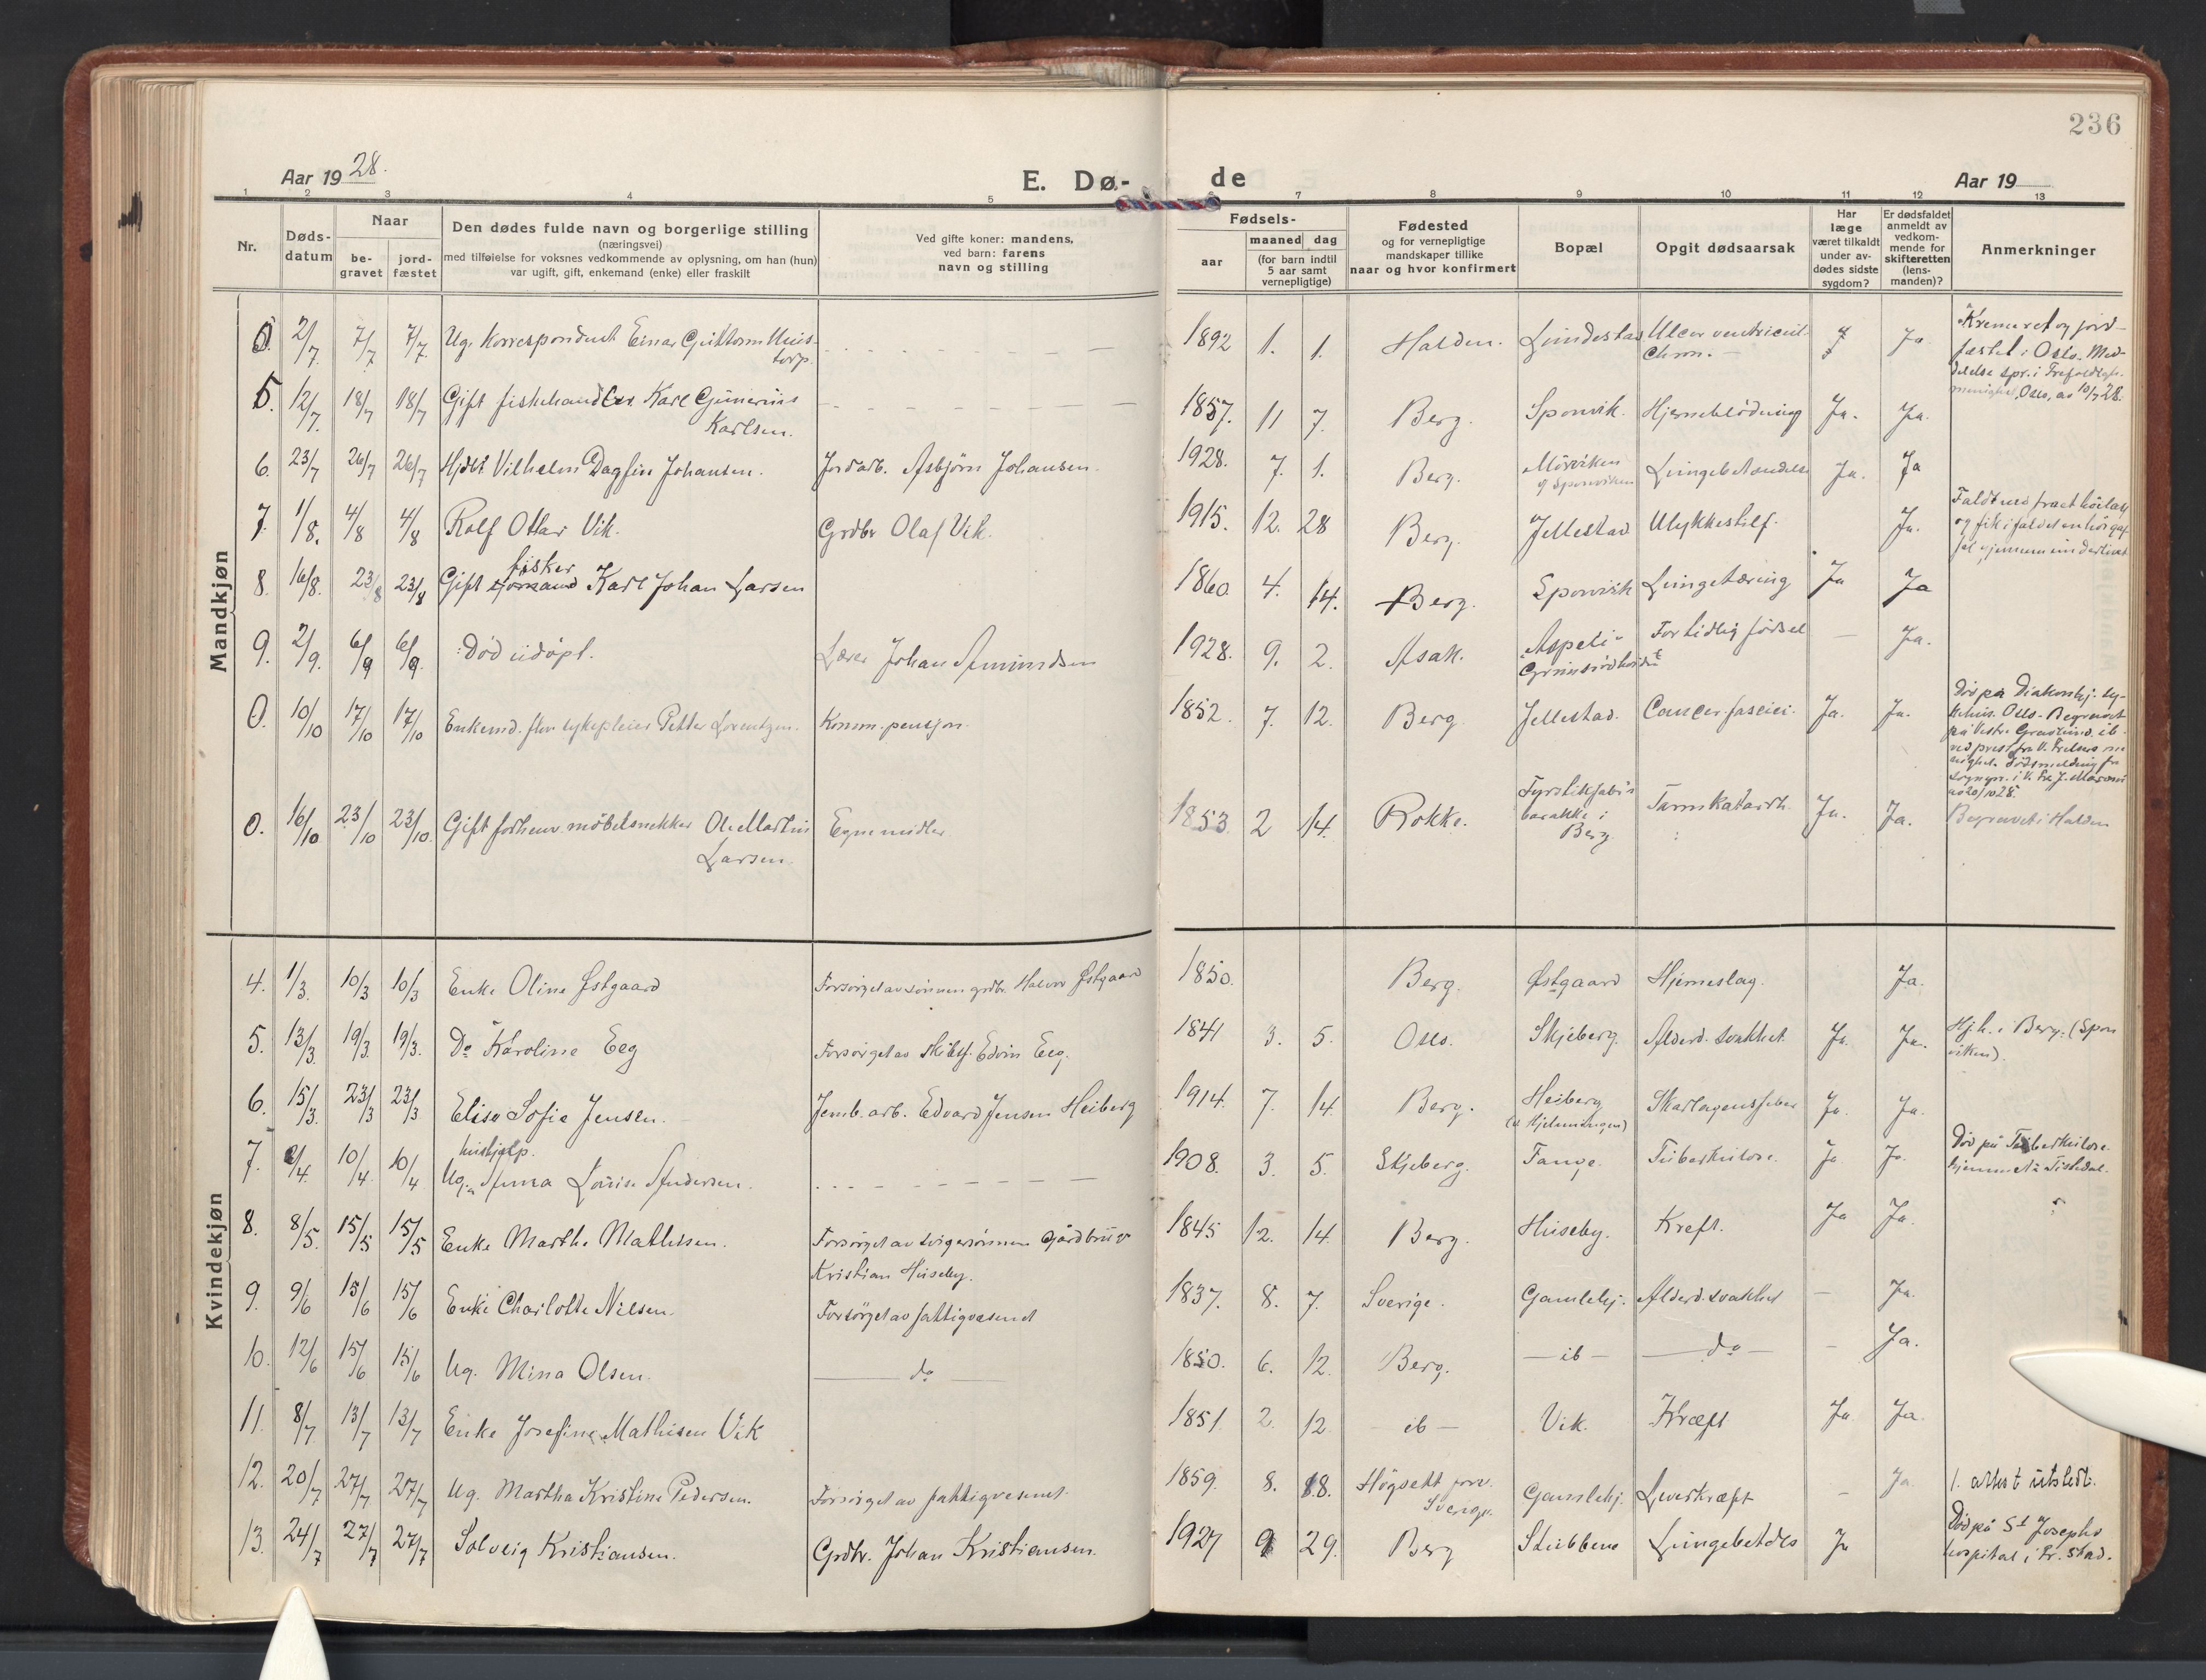 236
Aar 19 28.
E. Dø-
de
Aar 19
1 2 3 4 5 7 8 9 10 11 12 13
Nr.
Døds-
datum
Naar
be-
gravet
jord-
fæstet
Den dødes fulde navn og borgerlige stilling
(næringsvei)
med tilføielse for voksnes vedkommende av oplysning, om han (hun)
var ugift, gift, enkemand (enke) eller fraskilt
Ved gifte koner: mandens,
ved barn: farens
navn og stilling
Fødsels-
aar
maaned dag
(for barn indtil
5 aar samt
vernepligtige)
Fødested
og for vernepligtige
mandskaper tillike
naar og hvor konfirmert
Bopæl
Opgit dødsaarsak
Har
læge
været tilkaldt
under av-
dødes sidste
sygdom?
Er dødsfaldet
anmeldt av
vedkom-
mende for
skifteretten
(lens-
manden)?
Anmerkninger
Mandkjøn
0. 2/7. 7/7 7/7. Ug. Korrespondent Einar Guttorm 1892 1. 1. Halden. Lundestad Ulcer ventricul. Ja
torp. chron. —
Kremeret og jord-
fæstet i Oslo. Med-
delelse spr. i Trefoldigh.
menighet, Oslo, av 10/7 28.
5. 12/7. 18/7 18/7 Gift fiskehandler Karl Gunerius 1857. 11 7. Berg. Sponvik. Hjerneblødning Ja. Ja.
Karlsen.
6. 23/7 26/7 26/7 Hjdbt Vilhelm Dagfin Johansen. Jordarb. Asbjørn Johansen. 1928. 7. 1. Berg. Lungebetændelse Ja. Ja
7. 1/8. 4/8 4/8 Rolf Ottar Vik. Grdbr Olaf Vik. 1915. 12. 28 Berg. Jellestad Ulykkestilf. Ja.
Faldt ned fra et høilass
og fik i faldet en høigaf-
fel gjennem underlivet
fisker
8. 16/8. 23/8 23/8 Gift sjømand Karl Johan Larsen 1860. 4. 14. Berg. Sponvik Lungetæring Ja Ja
9. 2/9. 6/9 6/9. Død udøpt. Lærer Johan Amundsen 1928. 9. 2. Asak. Aspeli - For tidlig fødsel — Ja.
0. 10/10 17/10 17/10 Enkemd. fhv sykepleier Petter Lorentzen. Komm. pensjon. 1852. 7. 12. Berg. Jellestad. Cancer fasciei. Ja. Ja.
Død på Diakonhj. sy-
kehus. Oslo. Begravet
på Vestre Gravlund. ib
0. 16/10 23/10 23/10. Gift forhenv. møbelsnekker Ole Martin Egne midler. 1853. 2 14. Rokke. Fyrstikfabr's Tarmkatarrh. Ja. Ja. Begravet i Halden
Larsen. barakke i
Berg
Kvindekjøn
4. 1/3. 10/3 10/3 Enke Oline Østgaard Forsørget av sønnen grdbr. Halvor Østgaard 1850. Berg. Østgaard Hjerneslag. Ja.
5. 13/3. 19/3. 19/3. Do Karoline Eeg Forsørget av Edvin Eeg. 1841 3. 5. Oslo. Skjeberg. Alderd. svakhet. Ja. Ja. Hjh. i Berg. (Spon
viken).
6. 15/3. 23/3 23/3 Elise Sofie Jensen. Jernb. arb. Edvard Jensen Heiberg 1914. 7. 14. Berg. Heiberg Skarlagensfeber Ja. Ja.
hushjælp.
7. 2/4. 10/4 10/4 Ug. Anna Lovise Andersen. 1908. 3. 5. Skjeberg. Tange. Tuberkulose. Ja Ja. Død på Tuberkulose-
hjemmet i Tistedal.
8. 8/5. 15/5 15/5 Enke Marthe Mathisen. Forsørget av svigersønnen gårdbruver 1845 12. 14. Berg. Huseby. Kreft. Ja Ja.
Kristian Huseby.
9. 9/6 15/6 15/6 Enke Charlotte Nilsen. Forsørget av fattigvæsenet 1837. 8. 7. Sverige. Gamlehj. Alderd. svakhet — Ja.
10. 12/6 15/6 15/6 Ug. Mina Olsen. — do — 1850. 6. 12. Berg. — ib — — do — — Ja.
11. 8/7 13/7 13/7 Enke Josefine Mathisen Vik 1851. 2. 12 ib — Vik. Kræft Ja Ja.
12. 20/7 27/7 27/7 Ug. Martha Kristine Pedersen. Forsørget av fattigvesenet. 1859. 8. 18. Høgsett prv. Gamlehj. Leverkræft — Ja 1. attest utstedt.
Sverige.
13. 24/7 27/7 27/7 Solveig Kristiansen. Grdbr. Johan Kristiansen. 1927 9 29. Berg Stubbene Lungebetdls Ja Død på St Josephs
hospital i Fr. stad.